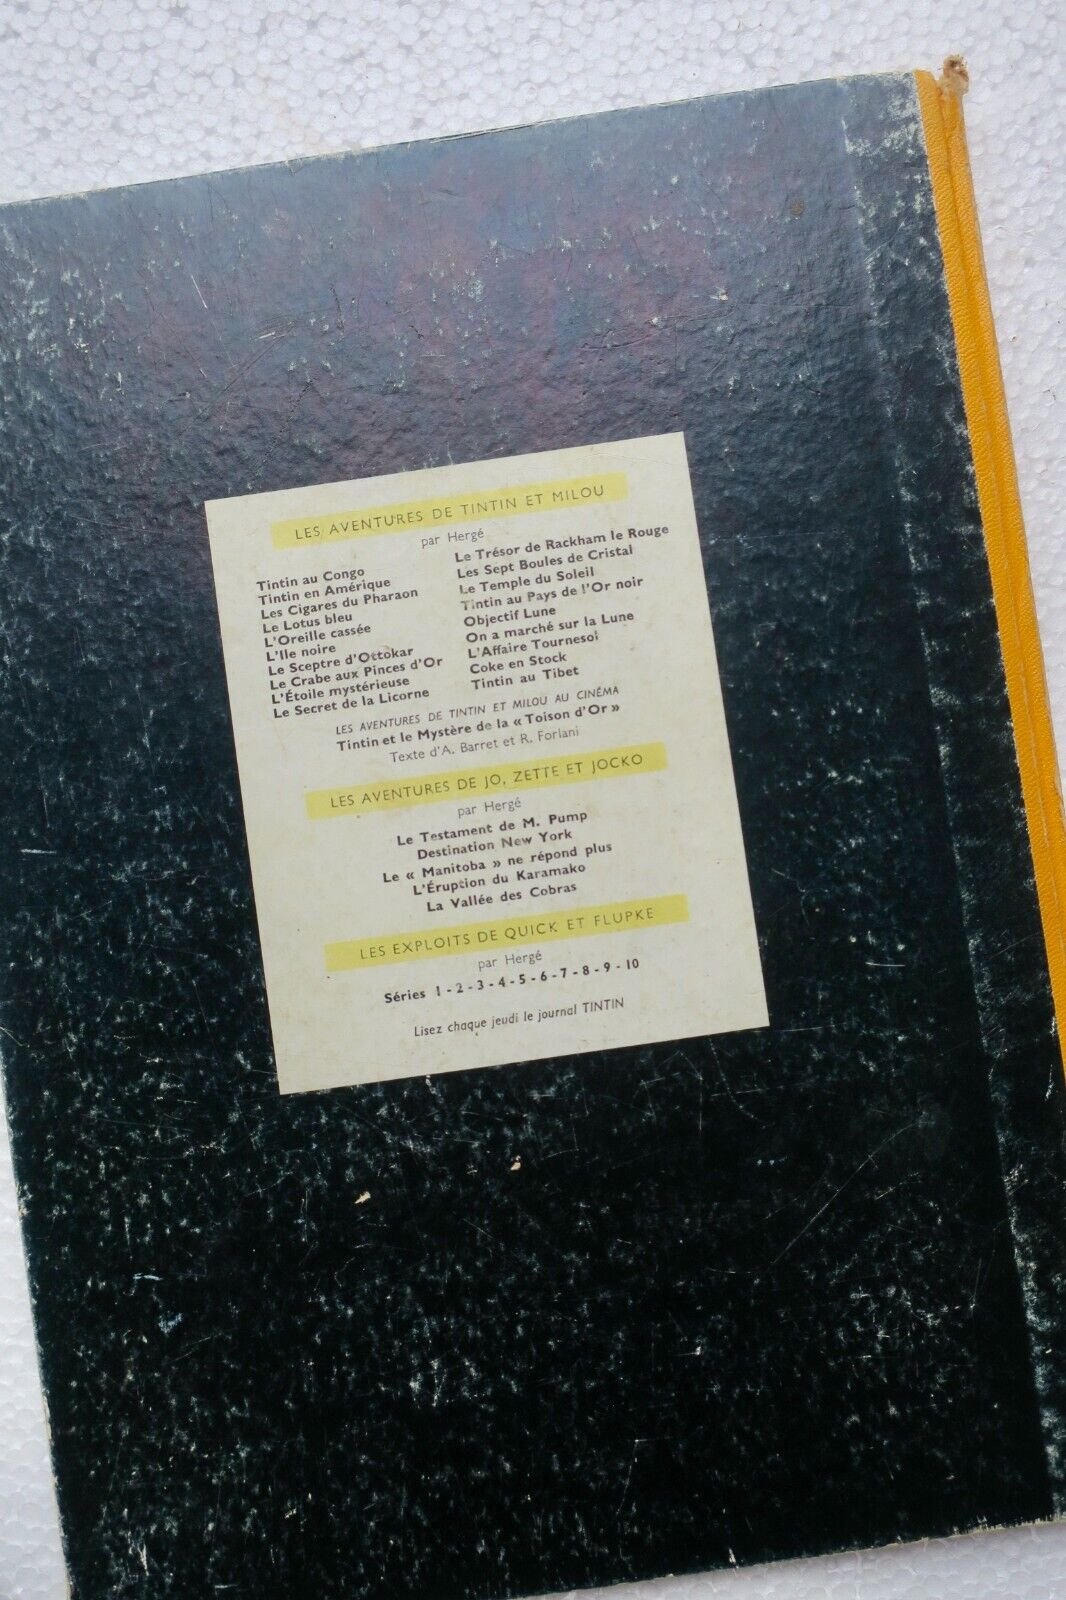 LES AVENTURES DE TINTIN ET MILOU
par Hergé
Tintin au Congo
Tintin en Amérique
Les Cigares du Pharaon
Le Lotus bleu
L'Oreille cassée
L'Ile noire
Le Sceptre d'Ottokar
Le Crabe aux Pinces d'Or
L'Étoile mystérieuse
Le Secret de la Licorne
Le Trésor de Rackham le Rouge
Les Sept Boules de Cristal
Le Temple du Soleil
Tintin au Pays de l'Or noir
Objectif Lune
On a marché sur la Lune
L'Affaire Tournesol
Coke en Stock
Tintin au Tibet
LES AVENTURES DE TINTIN ET MILOU AU CINÉMA
Tintin et le Mystère de la « Toison d'Or »
Texte d'A. Barret et R. Forlani
LES AVENTURES DE JO, ZETTE ET JOCKO
par Hergé
Le Testament de M. Pump
Destination New York
Le « Manitoba » ne répond plus
L'Éruption du Karamako
La Vallée des Cobras
LES EXPLOITS DE QUICK ET FLUPKE
par Hergé
Séries 1 - 2 - 3 - 4 - 5 - 6 - 7 - 8 - 9 - 10
Lisez chaque jeudi le journal TINTIN